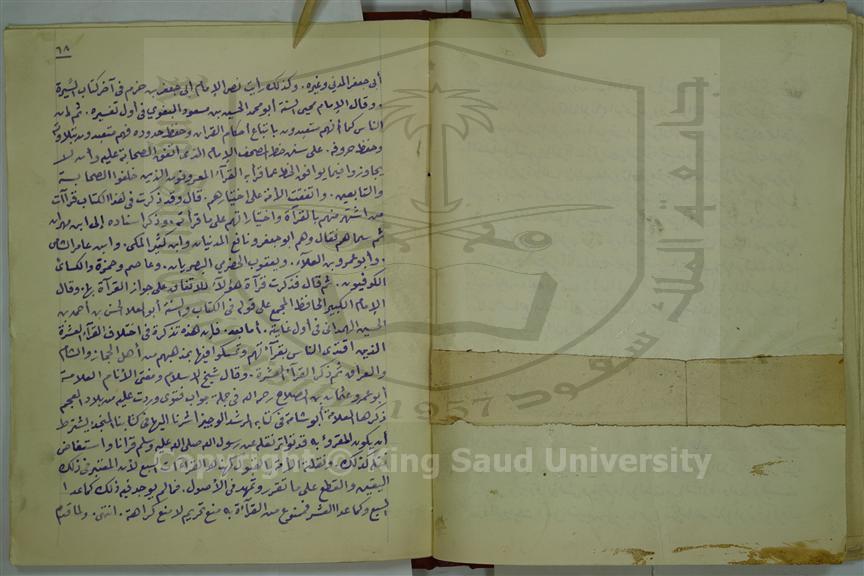 ٦٨
أبى جعفر المدنى وغيره. وكذلك رأيت نص الإمام ابى جعفر بن حزم فى آخر كتاب السيرة
. وقال الإمام محيى السنة أبو محمد الحسين بن مسعود البغوى فى أول تفسيره. ثم إن
الناس كما أنهم متعبدون باتباع أحكام القرآن وحفظ حدوده فهم متعبدون بتلاوته
وحفظ حروفه. على سنن خط المصحف الإمام الذى اتفق الصحابة عليه وأن لا
يجاوزوا فيما يوافق الخط عما قرأ به القرآء المعروفون الذين خلفوا الصحابة
والتابعين. واتفقت الأمة على اختيارهم. قال وقد ذكرت فى هذا الكتاب قرآآت
من اشتهر منهم بالقرآة واختياراتهم على ما قرأته. وذكر إسناده إلى ابن مهران
ثم سماهم فقال وهم ابو جعفر ونافع المدنيان وابن كثير المكى. وابن عامر الشامى
. وابو عمرو بن العلآء. ويعقوب الحضرمى البصريان. وعاصم وحمزة والكسائى
الكوفيون. ثم قال فذكرت قرآة هؤلاء للاتفاق على جواز القرآة بها. وقال
الإمام الكبير الحافظ المجمع على قوله فى الكتاب والسنة أبو العلاء الحسن بن أحمد بن
الحسين الهمدانى فى أول غايته. أما بعد. فإن هذه تذكرة فى اختلاف القرآء العشرة
الذين اقتدى الناس بقرآءتهم وتمسكوا فيها بمذهبهم من أهل الحجاز والشام
والعراق ثم ذكر القرآء العشرة. وقال شيخ الإسلام ومفتى الأنام العلامة
أبو عمرو عثمان بن الصلاح رحمه الله فى جملة جواب فتوى وردت عليه من بلاد العجم
ذكرها العلامة أبو شامة فى كتابه المرشد الوجيز أشرنا إليها فى كتابنا المنجد يشترط
أن يكون المقروء به قد تواتر نقله عن رسول الله صلى الله عليه وسلم قرآنا واستفاض
نقله كذلك وتلقته الأمة بالقبول كهذه القراآت السبع لأن المعتبر فى ذلك
اليقين والقطع على ما تقرر وتمهد فى الأصول. فما لم يوجد فيه ذلك كما عدا
السبع وكما عدا العشر فممنوع من القرآة به منع تحريم لا منع كراهة. انتهى. ولما قدم
جامعة الملك سعود
1957
© King Saud University